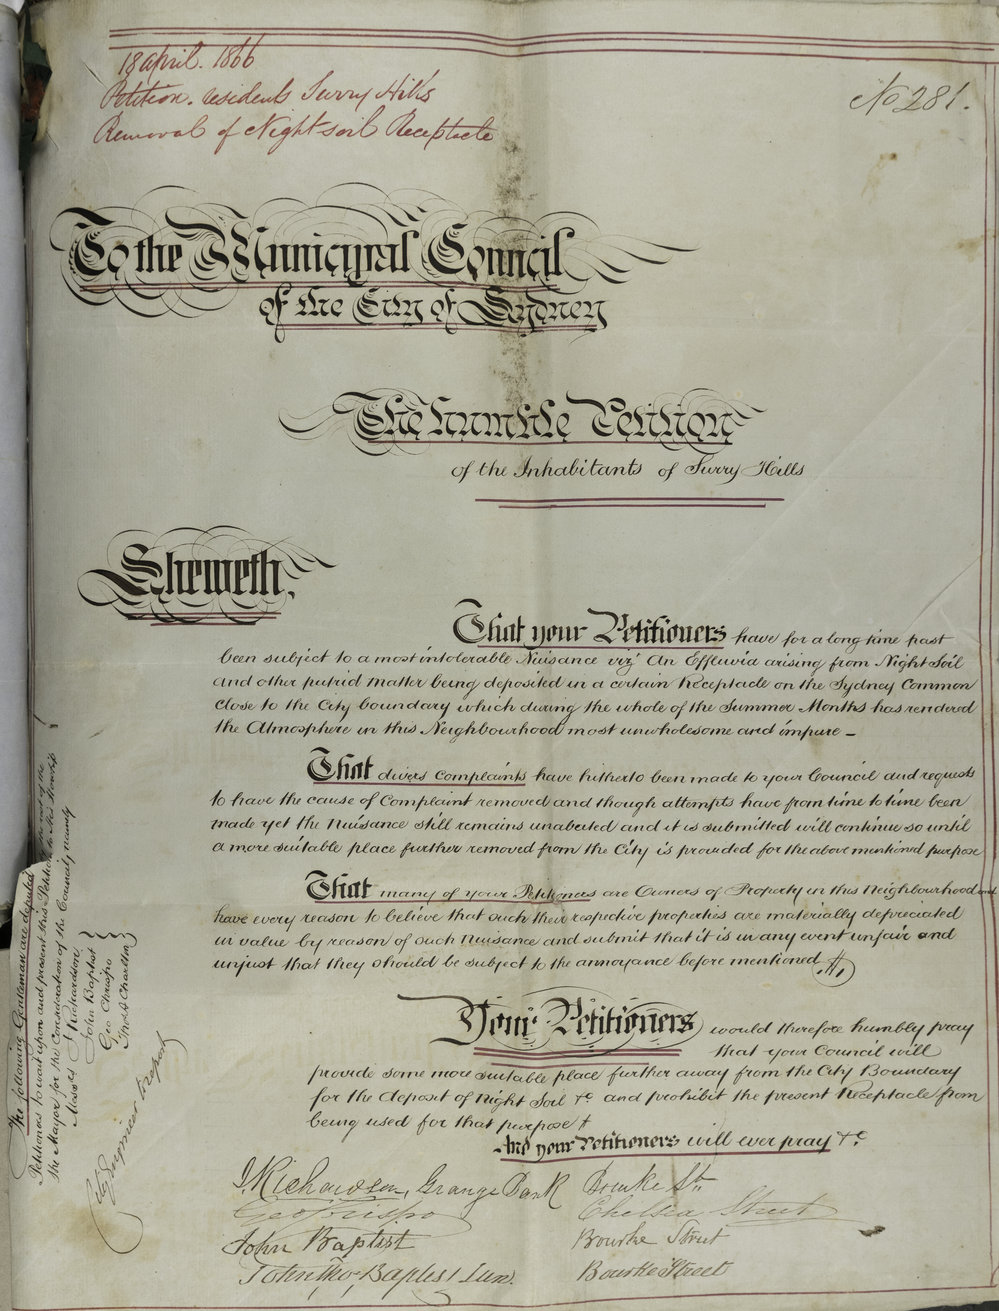 18 april. 1866
Petition. residents Surry Hills
Removal of Nightsoil Receptacle
No 281.
To the Municipal Council
of the City of Sydney
The humble Petition
of the Inhabitants of Surry Hills
Sheweth,
That your Petitioners have for a long time past
been subject to a most intolerable Nuisance viz' An Effluvia arising from Night Soil
and other putrid matter being deposited in a certain Receptacle on the Sydney Common
close to the City boundary which during the whole of the Summer Months has rendered
the Atmosphere in this Neighbourhood most unwholesome and impure –
That divers complaints have hitherto been made to your Council and requests
to have the cause of Complaint removed and though attempts have from time to time been
made yet the Nuisance still remains unabated and it is submitted will continue so until
a more suitable place further removed from the City is provided for the above mentioned purpose
That many of your Petitioners are Owners of Property in this Neighbourhood and
have every reason to believe that such their respective properties are materially depreciated
in value by reason of such Nuisance and submit that it is in any event unfair and
unjust that they should be subject to the annoyance before mentioned
Your Petitioners would therefore humbly pray
that your Council will
provide some more suitable place further away from the City Boundary
for the deposit of Night Soil &c and prohibit the present Receptacle from
being used for that purpose
And your Petitioners will ever pray &c
J. Richardson, Grange Bank Bourke St.
Geo Crispo Chelsea Street
John Baptist Bourke Street
John Tho. Baptist Jun. Bourke Street
The following Gentlemen are deputed
Petitioners to wait upon and present this Petition to His Worship
the Mayor for the Consideration of the Council, namely
Messrs J Richardson
John Baptist
Geo Chrispo
Thos S Charlton
City Engineer to report